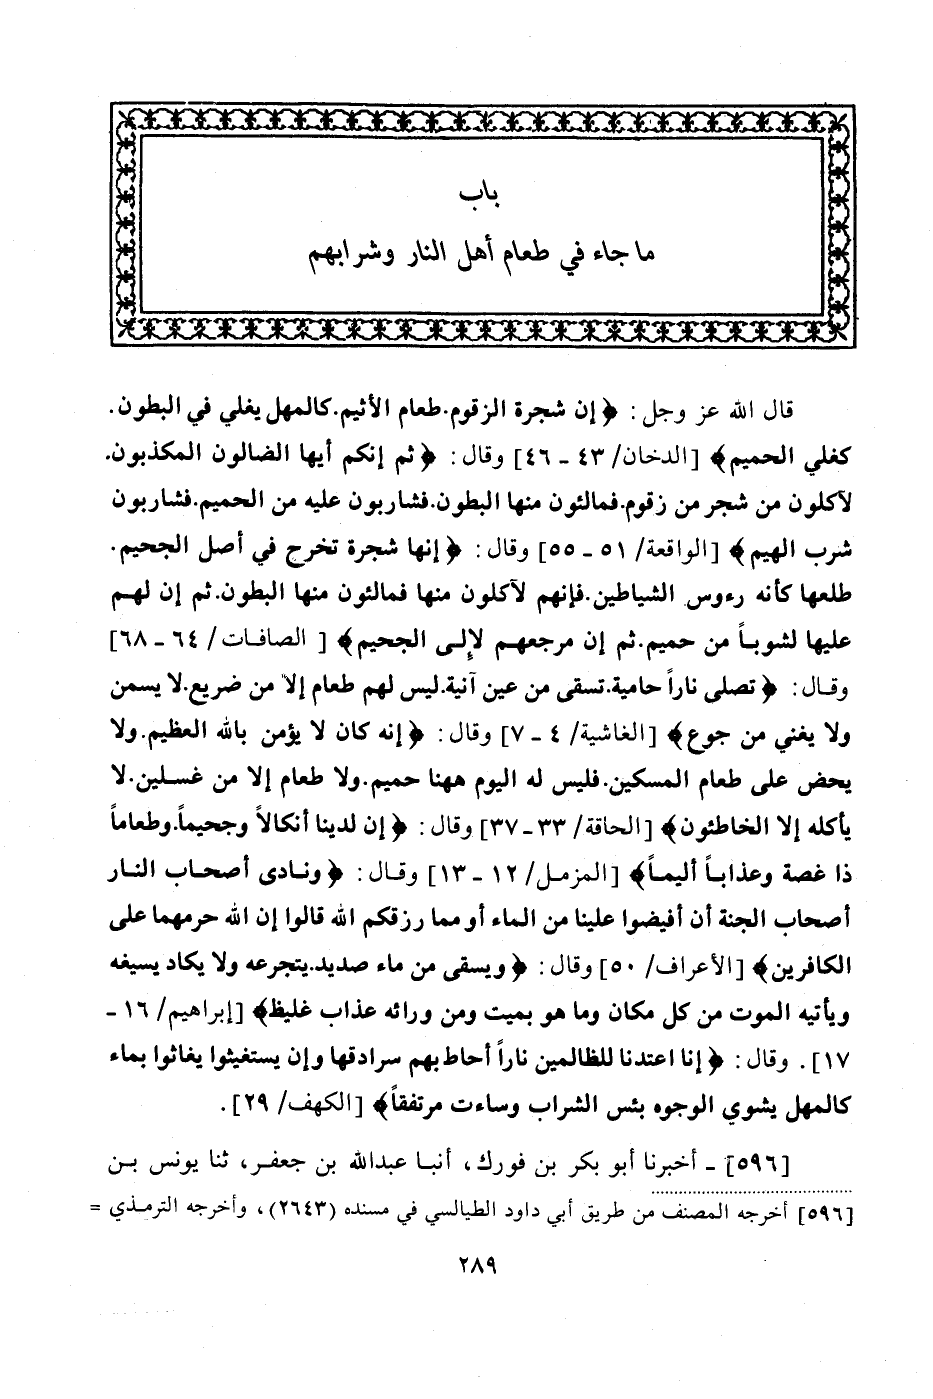 باب
ما جاء في طعام أهل النار وشرابهم
قال الله عز وجل: ﴿إن شجرة الزقوم.طعام الأثيم.كالمهل يغلي في البطون.
كغلي الحميم﴾ [الدخان/ ٤٣ ـ ٤٦] وقال: ﴿ثم إنكم أيها الضالون المكذبون.
لآكلون من شجر من زقوم.فمالئون منها البطون.فشاربون عليه من الحميم.فشاربون
شرب الهيم﴾ [الواقعة/ ٥١ ـ ٥٥] وقال: ﴿إنها شجرة تخرج في أصل الجحيم.
طلعها كأنه رءوس الشياطين.فإنهم لآكلون منها فمالئون منها البطون.ثم إن لهم
عليها لشوباً من حميم.ثم إن مرجعهم لإلى الجحيم﴾ [ الصافات/ ٦٤ ـ ٦٨]
وقال: ﴿تصلى ناراً حامية.تسقى من عين آنية.ليس لهم طعام إلا من ضريع.لا يسمن
ولا يغني من جوع﴾ [الغاشية/ ٤ ـ ٧] وقال: ﴿إنه كان لا يؤمن بالله العظيم.ولا
يحض على طعام المسكين.فليس له اليوم ههنا حميم.ولا طعام إلا من غسلين.لا
يأكله إلا الخاطئون﴾ [الحاقة/ ٣٣ ـ ٣٧] وقال: ﴿إن لدينا أنكالاً وجحيماً.وطعاماً
ذا غصة وعذاباً أليماً﴾ [المزمل/ ١٢ ـ ١٣] وقال: ﴿ونادى أصحاب النار
أصحاب الجنة أن أفيضوا علينا من الماء أو مما رزقكم الله قالوا إن الله حرمهما على
الكافرين﴾ [الأعراف/ ٥٠] وقال: ﴿ويسقى من ماء صديد.يتجرعه ولا يكاد يسيغه
ويأتيه الموت من كل مكان وما هو بميت ومن ورائه عذاب غليظ﴾ [إبراهيم/ ١٦ ـ
١٧]. وقال: ﴿إنا اعتدنا للظالمين ناراً أحاط بهم سرادقها وإن يستغيثوا يغاثوا بماء
كالمهل يشوي الوجوه بئس الشراب وساءت مرتفقاً﴾ [الكهف/ ٢٩].
[٥٩٦] ـ أخبرنا أبو بكر بن فورك، أنبا عبدالله بن جعفر، ثنا يونس بن
[٥٩٦] أخرجه المصنف من طريق أبي داود الطيالسي في مسنده (٢٦٤٣)، وأخرجه الترمذي =
٢٨٩